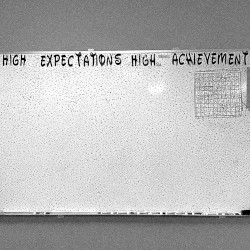 HIGH EXPECTATIONS HIGH ACHIEVEMENT